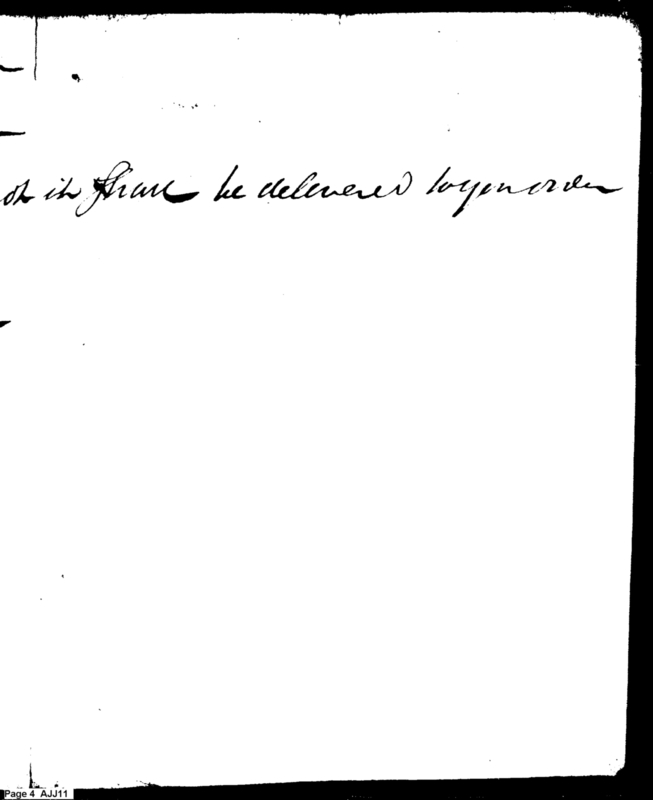 it shall be delivered to your order
Page 4 AJJ11